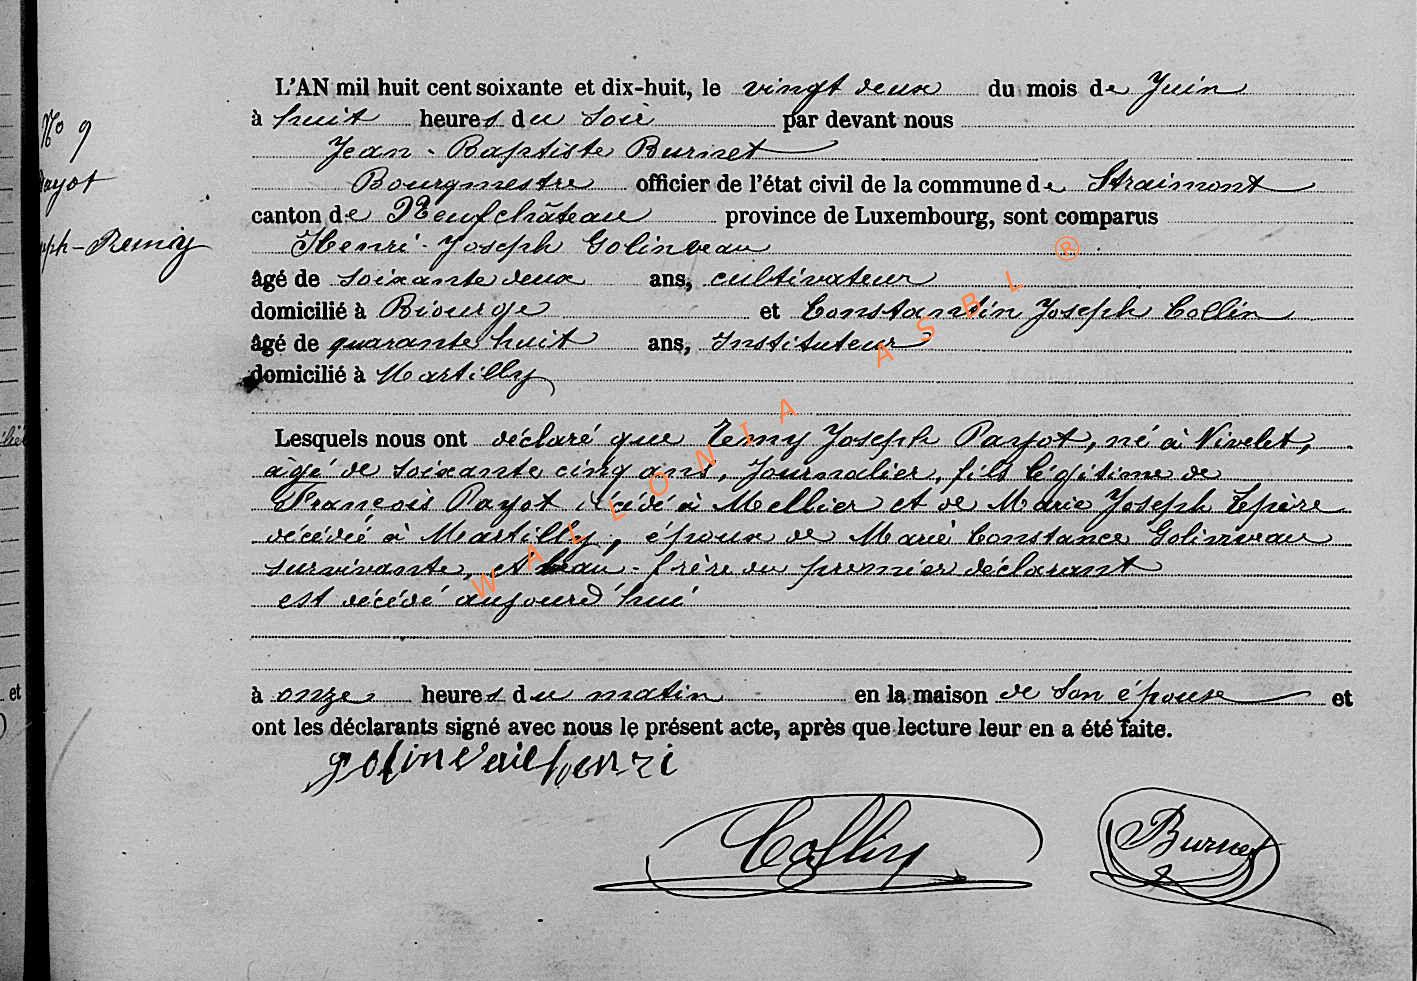 L'AN mil huit cent soixante et dix-huit, le vingt deux du mois de Juin
à huit heures du soir par devant nous
Jean-Baptiste Burnet
Bourgmestre officier de l'état civil de la commune de Straimont
canton de Neufchâteau province de Luxembourg, sont comparus
Henri-Joseph Golinveau
âgé de soixante deux ans, cultivateur
domicilié à Biourge et Constantin Joseph Collin
âgé de quarante huit ans, Instituteur
domicilié à Martilly
Lesquels nous ont déclaré que Remy Joseph Payot, né à Nivelet,
âgé de soixante cinq ans, Journalier, fils légitime de
François Payot décédé à Mellier et de Marie Joseph
décédée à Martilly, époux de Marie Constance Golinveau
survivante, et beau-frère du premier déclarant
est décédé aujourd'hui
à onze heures du matin en la maison de son épouse et
ont les déclarants signé avec nous le présent acte, après que lecture leur en a été faite.
Collin
Burnet
No 9
ayot
ph-Remiy
et
WALLONIA ASBL ®